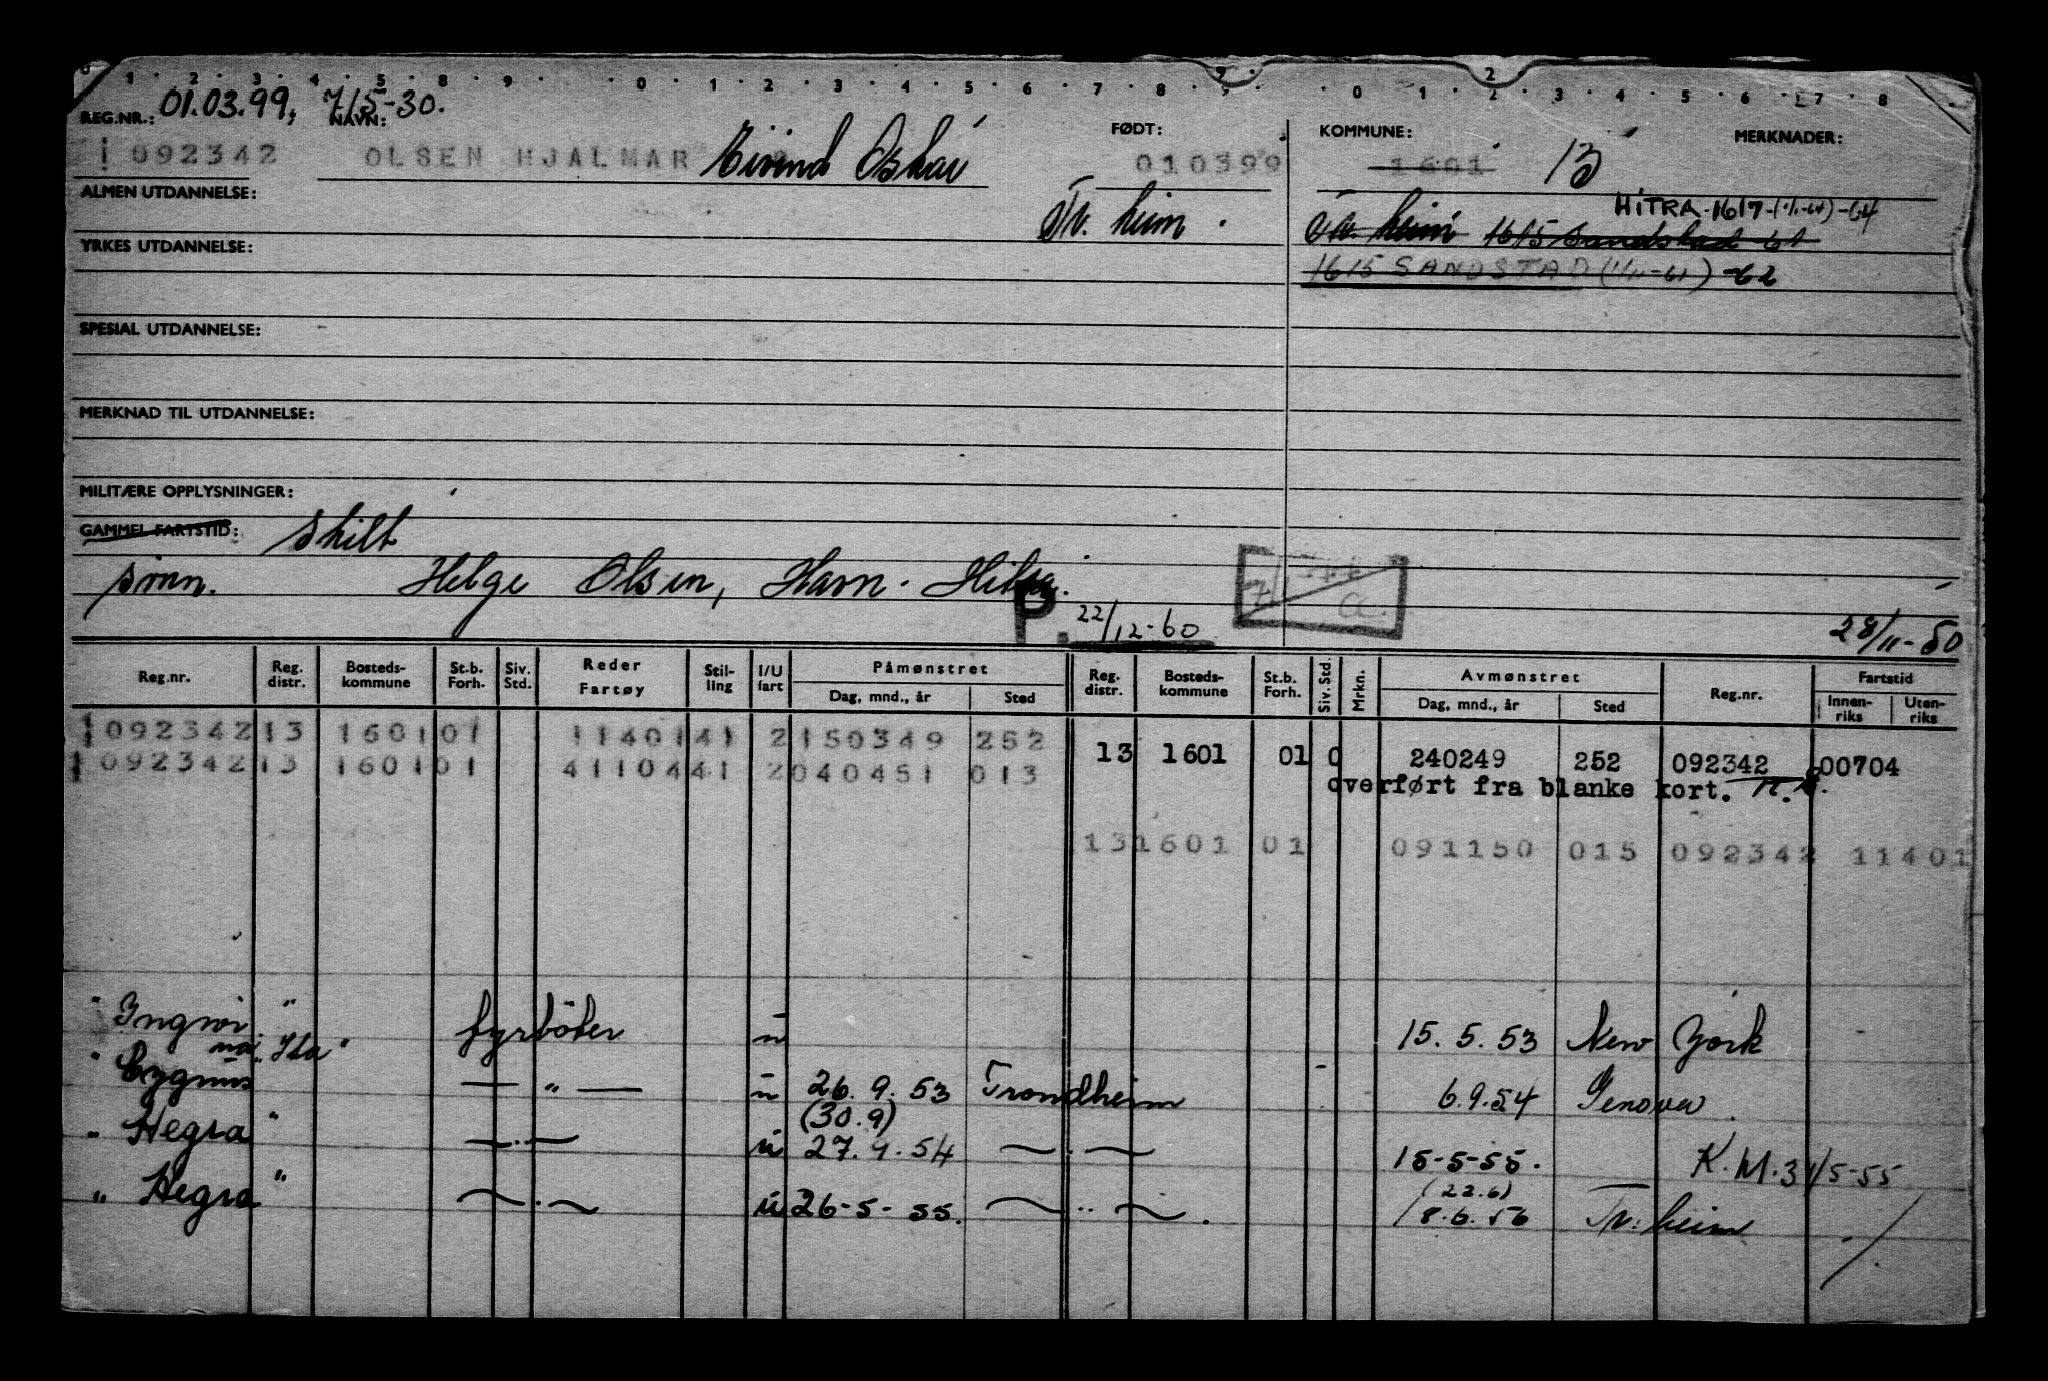 1 2 3 4 5 8 9 0 1 2 3 4 5 6 7 8 9 0 1 2 3 4 5 6 7 8
REG.NR.: 01.03.99, NAVN: 7/5-30. FØDT: KOMMUNE: MERKNADER:
092342 OLSEN HJALMAR Eivind Oskar 010399 1601 13
ALMEN UTDANNELSE: Tr. heim. HITRA 1617-(1/1-64)-64
Tr. heim 1615 Sandstad 61
YRKES UTDANNELSE: 1615 SANDSTAD (1/11-61) -62
SPESIAL UTDANNELSE:
MERKNAD TIL UTDANNELSE:
MILITÆRE OPPLYSNINGER:
GAMMEL FARTSTID: skilt
sønn. Helge Olsen, Havn. Hitra.
P. 22/12-60 28/11-50
Reg.nr. Reg. distr. Bosteds-kommune St.b. Forh. Siv. Std. Reder Fartøy Stil-ling I/U fart Påmønstret Dag, mnd., år Sted Reg. distr. Bosteds-kommune St.b. Forh. Siv. Std. Mrkn. Avmønstret Dag, mnd., år Sted Reg.nr. Fartstid Innen-riks Uten-riks
092342 13 1601 01 1140141 2 150349 252 13 1601 01 0 240249 252 092342 00704
092342 13 1601 01 4110441 2 040451 013 overført fra blanke kort.
13 1601 01 091150 015 092342 11401
" Ingwi " fyrbøter u 15. 5. 53 New York
" Cygnus — " — u 26. 9. 53 Trondheim 6.9.54 Genova
(30.9)
" Hegra " — " — u 27. 9. 54 — " — 15-5-55. K.M. 31/5-55
(22.6)
" Hegra " — " — u 26-5-55. — " — 18.6.56 Tr. heim